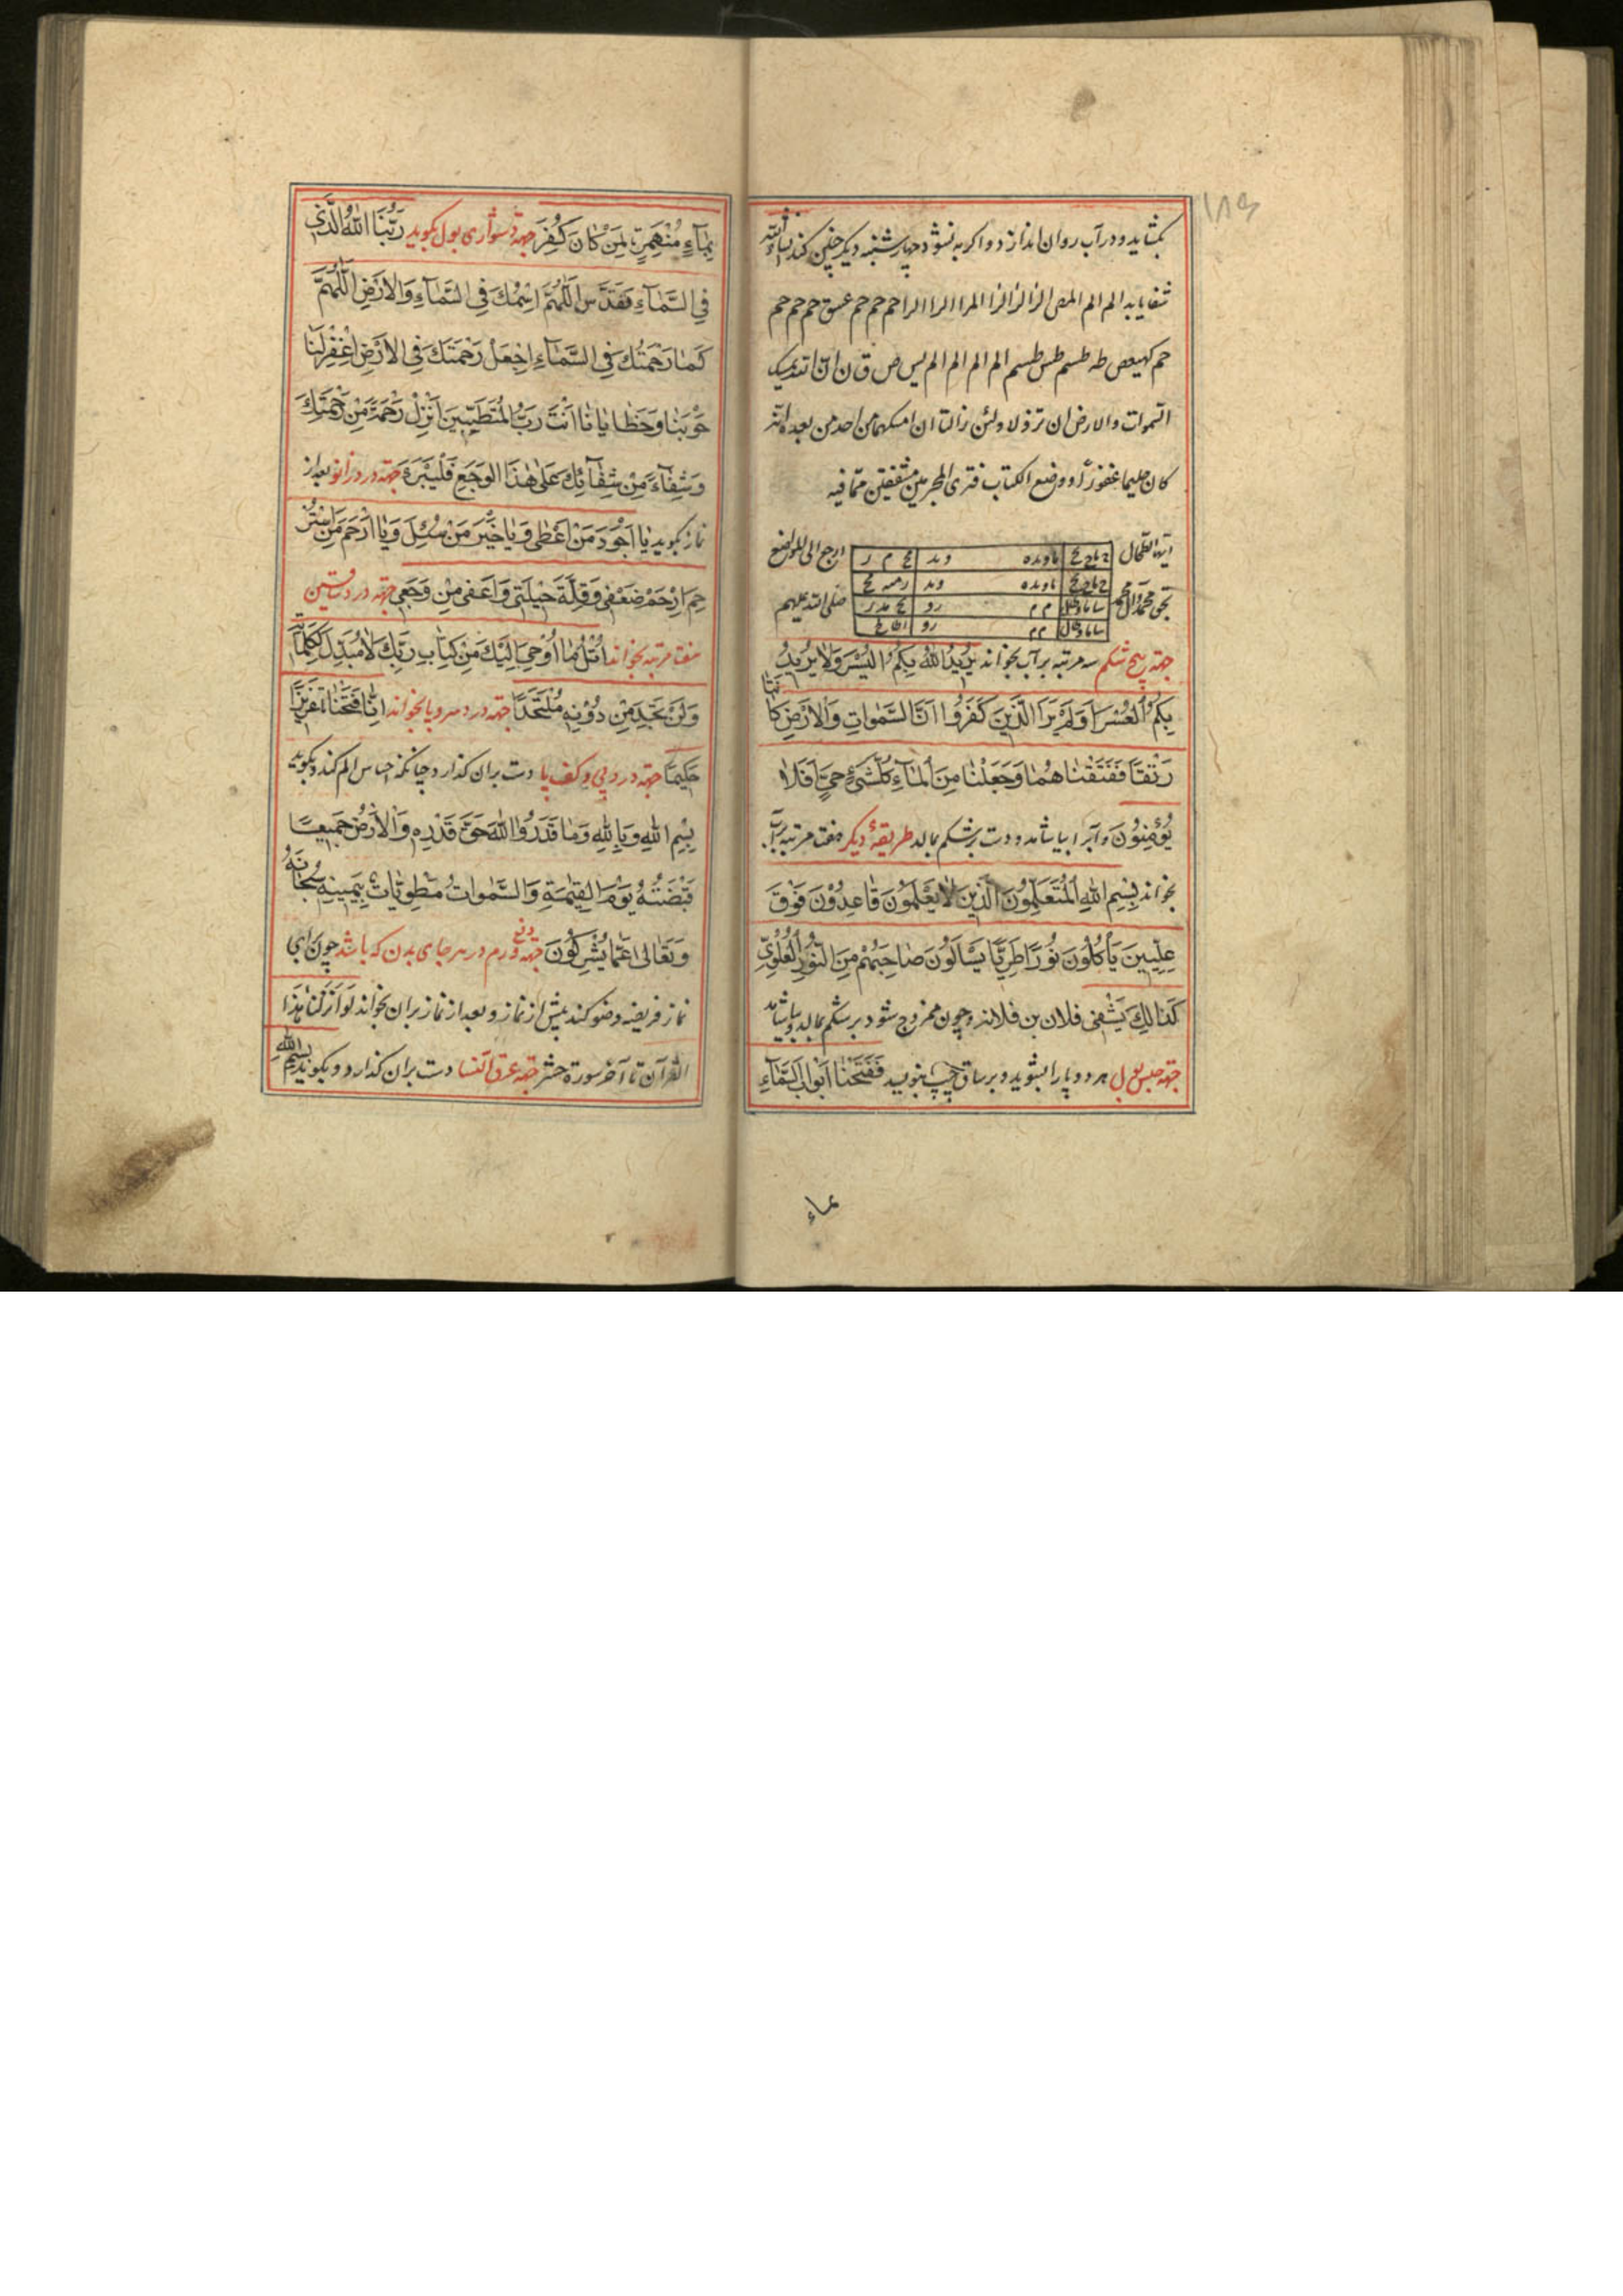 ۱۸۶
بگشاید و در آب روان اندازد و اگر به نشود چهارشنبه دیگر چنین کند انشاءالله
شفا یابد الم الم المص الر الر الر المر الر الر حم حم حم عسق حم حم حم
حم کهیعص طه طسم طس طسم الم الم الم الم یس ص ق ن ان الله یمسک
السموات والارض ان تزولا ولئن زالتا ان امسکهما من احد من بعده انه
کان حلیما غفورا ووضع الکتاب فتری المجرمین مشفقین مما فیه
ایها الطحال ارجع الی الموضع
بحق محمد وال محمد صلی الله علیهم
جهة پیچ شکم سه مرتبه بر آب بخواند یُرِیدُ اللهُ بِکُمُ الیُسْرَ وَلَا یُرِیدُ
بِکُمُ العُسْرَ اَوَلَمْ یَرَ الَّذِینَ کَفَرُوا اَنَّ السَّمٰوَاتِ وَالْاَرْضَ کَانَتَا
رَتْقًا فَفَتَقْنَاهُمَا وَجَعَلْنَا مِنَ الْمَآءِ کُلَّ شَیْءٍ حَیٍّ اَفَلَا
یُؤْمِنُونَ و آبرا بیاشامد و دست بر شکم بمالد طریقهٔ دیگر هفت مرتبه بر آب
بخواند بِسْمِ اللهِ الْمُتَعَلِّمُونَ الَّذِینَ لَا یَعْلَمُونَ قَاعِدُونَ فَوْقَ
عِلِّیِینَ یَأْکُلُونَ نُورًا طَرِیًّا یَسْأَلُونَ صَاحِبَهُمْ مِنَ النُّورِ الْعُلْوِیِّ
کَذَالِكَ یَشْفٰی فلان بن فلانه و چون ممزوج شود بر شکم بمالد و بیاشامد
جهة حبس بول هر دو پا را بشوید و بر ساق چپ بنویسد فَفَتَحْنَا اَبْوَابَ السَّمَآءِ
بماء
بِمَآءٍ مُنْهَمِرٍ لِمَنْ کَانَ کُفِرَ جهة دشواری بول بگوید رَبُّنَا اللهُ الَّذِی
فِی السَّمَآءِ تَقَدَّسَ اللّٰهُمَّ اسْمُكَ فِی السَّمَآءِ وَالْاَرْضِ اللّٰهُمَّ
کَمَا رَحْمَتُكَ فِی السَّمَآءِ اِجْعَلْ رَحْمَتَكَ فِی الْاَرْضِ اغْفِرْلَنَا
حَوْبَنَا وَخَطَایَانَا اَنْتَ رَبُّ الْمُتَطَیِّبِینَ اَنْزِلْ رَحْمَةً مِنْ رَحْمَتِكَ
وَشِفَآءً مِنْ شِفَآئِكَ عَلٰی هٰذَا الْوَجَعِ فَلْیَبْرَءَ جهة درد زانو بعد از
نماز بگوید یَا اَجْوَدَ مَنْ اَعْطٰی وَیَا خَیْرَ مَنْ سُئِلَ وَیَا اَرْحَمَ مَنِ اسْتُرْ
حِمَ ارْحَمْ ضَعْفِی وَقِلَّةَ حِیلَتِی وَاعْفِنِی مِنْ وَجَعِی جهة درد ساقین
هفت مرتبه بخواند اُتْلُ مَا اُوحِیَ اِلَیْكَ مِنْ کِتَابِ رَبِّكَ لَا مُبَدِّلَ لِکَلِمَاتِهِ
وَلَنْ تَجِدَ مِنْ دُونِهِ مُلْتَحَدًا جهة درد هر دو پا بخواند اِنَّا فَتَحْنَا تا عَزِیزًا
حَکِیمًا جهة درد پی و کف پا دست بران گذارد چنانکه احساس الم کند و بگوید
بِسْمِ اللهِ وَبِاللهِ وَمَا قَدَرُوا اللهَ حَقَّ قَدْرِهِ وَالْاَرْضُ جَمِیعًا
قَبْضَتُهُ یَوْمَ الْقِیٰمَةِ وَالسَّمٰوَاتُ مَطْوِیَّاتٌ بِیَمِینِهِ سُبْحَانَهُ
وَتَعَالٰی عَمَّا یُشْرِکُونَ جهة دفع ورم در هر جای بدن که باشد چون برای
نماز فریضه وضو کند پیش از نماز و بعد از نماز بران بخواند لَوْ اَنْزَلْنَا هٰذَا
القرآن تا آخر سورة حشر جهة عرق النسا دست بران گذارد و بگوید بسم الله